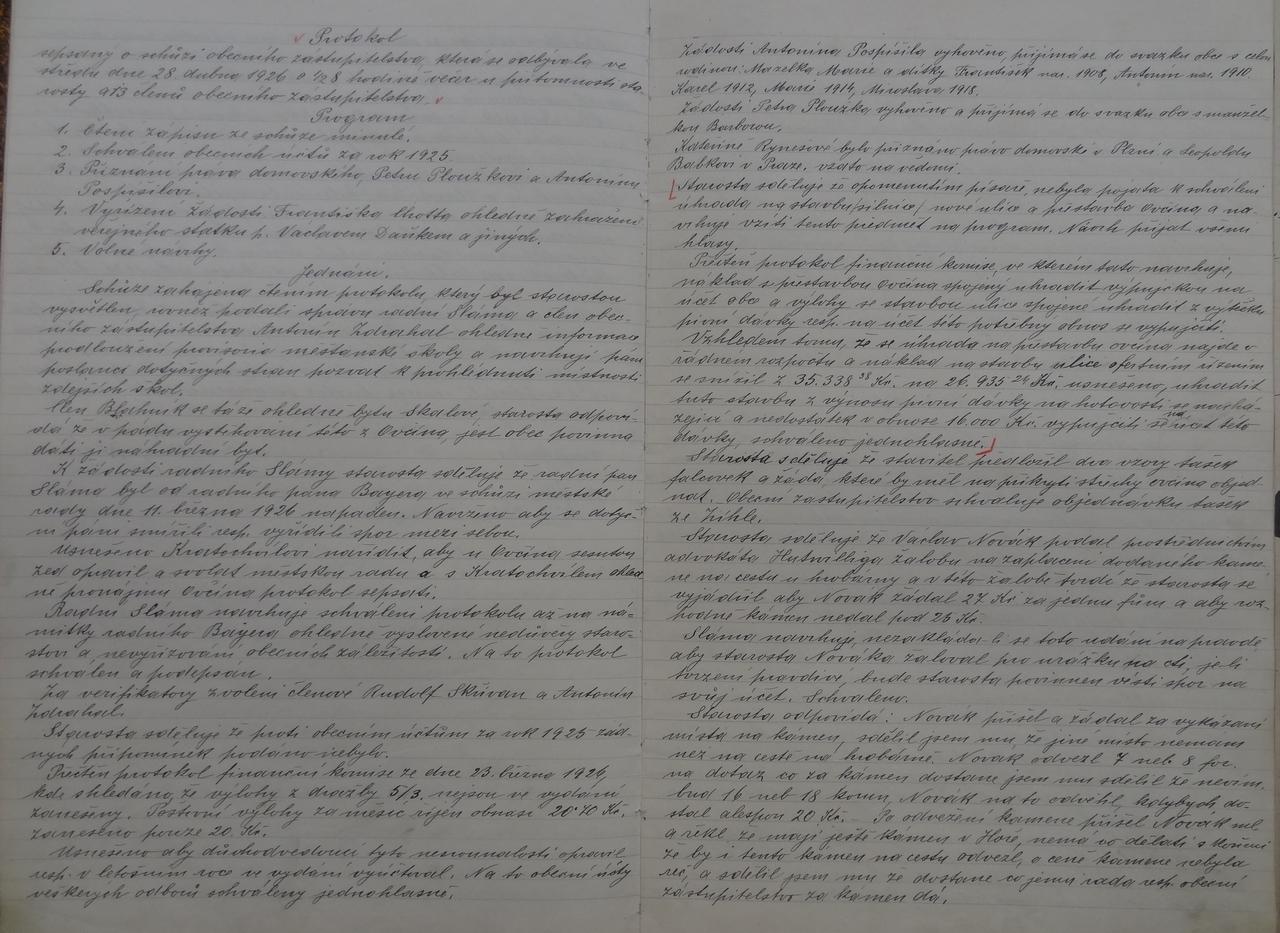 Protokol
sepsaný o schůzi obecního zastupitelstva, která se odbývala ve
středu dne 28. dubna 1926 o ½8 hodině večer u přítomnosti sta-
rosty a 13 členů obecního zastupitelstva.
Program
1. Čtení zápisu ze schůze minulé.
2. Schválení obecních účtů za rok 1925
3. Přiznání práva domovského, Petru Ploužkovi a Antonínu
Pospíšilovi.
4. Vyřízení žádosti Františka Chotta ohledně zahražení
veřejného statku p. Václavem Daňkem a jiných.
5. Volné návrhy.
Jednání.
Schůze zahájena čtením protokolu, který byl starostou
vysvětlen, rovněž podali zprávu radní Sláma a člen obec-
ního zastupitelstva Antonín Zdrahal ohledně informace
prodloužení provisoria měšťanské školy a navrhují pány
poslanci dotyčných stran pozvat k prohlédnutí místností
zdejších škol.
Člen Blahník se táže ohledně bytu Skalové, starosta odpoví-
dá že v pádu vystěhování této z Ovčína, jest obec povinna
dáti jí náhradní byt.
K žádosti radního Slámy starosta sděluje že radní pan
Sláma byl od radního pána Bayera ve schůzi městské
rady dne 11. března 1926 napaden. Navrženo aby se dotyč-
ní páni smířili resp. vyřídili spor mezi sebou.
Usneseno Kratochvílovi nařídit, aby u Ovčína sesutou
zeď opravil a svolat městskou radu a s Kratochvílem ohled-
ně pronájmu Ovčína protokol sepsati.
Radní Sláma navrhuje schválení protokolu až na ná-
mitky radního Bayera ohledně vyslovené nedůvěry staro-
stovi a nevyřizování obecních záležitostí. Na to protokol
schválen a podepsán.
Za verifikátory zvoleni členové Rudolf Skřivan a Antonín
Zdrahal.
Starosta sděluje že proti obecním účtům za rok 1925 žád-
ných připomínek podáno nebylo.
Přečten protokol finanční komise ze dne 23. března 1926,
kde shledáno, že výlohy z dražby 5/3. nejsou ve vydání
zaneseny. Poštovní výlohy za měsíc říjen obnáší 20·70 Kč.
zaneseno pouze 20 Kč.
Usneseno aby důchodvedoucí tyto nesrovnalosti opravil
resp. v letošním roce ve vydání vyúčtoval. Na to obecní účty
veškerých odborů schváleny jednohlasně.
Žádosti Antonína Pospíšila vyhověno, přijímá se do svazku obce s celou
rodinou: Manželka Marie a dítky František nar. 1908, Antonín nar. 1910,
Karel 1912, Marie 1914, Miroslava 1918.
Žádosti Petra Ploužka vyhověno a přijímá se do svazku obce s manžel-
kou Barborou.
Kateřině Rynesové bylo přiznáno právo domovské v Plzni a Leopoldu
Babkovi v Praze. vzato na vědomí.
Starosta sděluje že opomenutím písaře, nebyla pojata k schválení
úhrada na stavbu /silnice/ nové ulice a přestavba Ovčína a na-
vrhuje vzíti tento předmět na program. Návrh přijat všemi
hlasy.
Přečten protokol finanční komise, ve kterém tato navrhuje,
náklad s přestavbou Ovčína spojený uhradit výpůjčkou na
účet obce a výlohy se stavbou ulice spojené uhradit z výtěžku
pivní dávky resp. na účet této potřebný obnos se vypůjčiti.
Vzhledem tomu, že se úhrada na přestavbu ovčína najde v
řádném rozpočtu a náklad na stavbu ulice ofertním řízením
se snížil z 35.338 38 Kč. na 26.935 24 Kč, usneseno, uhradit
tuto stavbu z výnosu pivní dávky na hotovosti se nachá-
zející a nedostatek v obnose 16.000 Kč. vypůjčiti se na účet této
dávky, schváleno jednohlasně.
Starosta sděluje že stavitel předložil dva vzory tašek
falcovek a žádá, které by měl na přikrytí střechy ovčína objed-
nat. Obecní zastupitelstvo schvaluje objednávku tašek
ze Žihle.
Starosta sděluje že Václav Novák podal prostřednictvím
advokáta Hutwilliga žalobu na zaplacení dodaného kame-
ne na cestu u hrobárny a v této žalobě tvrdí že starosta se
vyjádřil aby Novák žádal 27 Kč za jednu fůru a aby roz-
hodně kámen nedal pod 25 Kč.
Sláma navrhuje, nezakládá-li se toto udání na pravdě
aby starosta Nováka žaloval pro urážku na cti, je-li
tvrzení pravdivé, bude starosta povinnen vésti spor na
svůj účet. Schváleno.
Starosta odpovídá: Novák přišel a žádal za vykázání
místa na kámen, sdělil jsem mu, že jiné místo nemám
než na cestě na hrobárně. Novák odvezl 7 neb 8 for.
na dotaz co za kámen dostane jsem mu sdělil že nevím,
buď 16 neb 18 korun, Novák na to odvětil, kdybych do-
stal alespoň 20 Kč. – Po odvezení kamene přišel Novák
a řekl, že mají ještě kámen v Hoře, nemá co dělati s
že by i tento kámen na cestu odvezl, o ceně kamene nebyla
řeč, a sdělil jsem mu že dostane co jemu rada resp. obecní
zastupitelstvo za kámen dá.